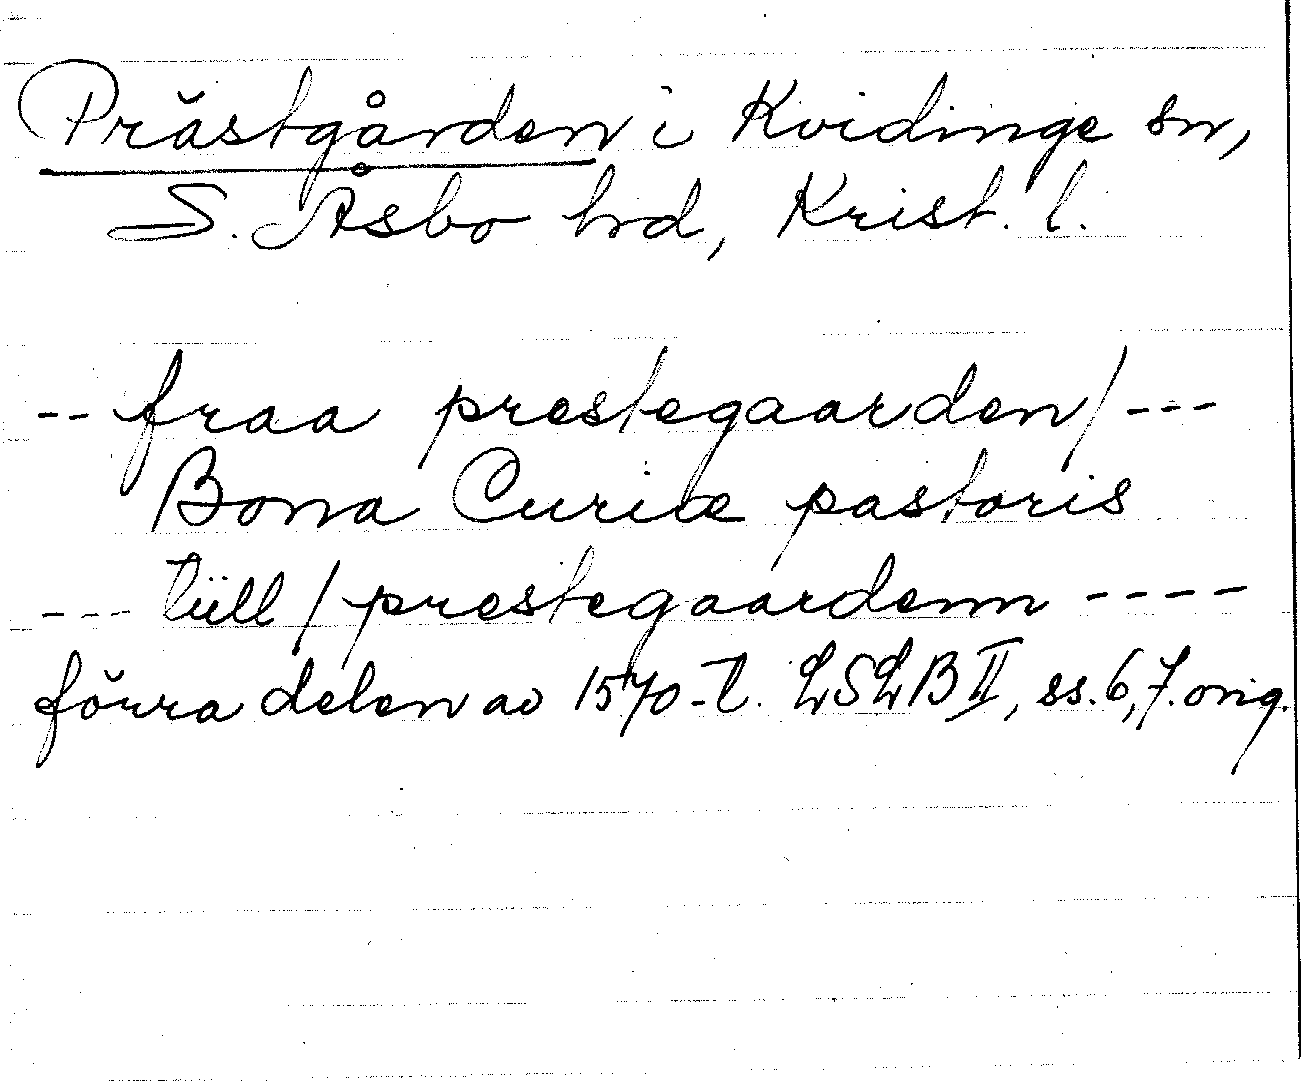 Prästgården i Kvidinge sn,
S. Åsbo hd, Krist. l.
-- fraa prestegaarden/---
Bona Curiæ pastoris
--- tüll/prestegaardenn ----
förra delen av 1570-t. LSLB II, ss. 6,7. orig.